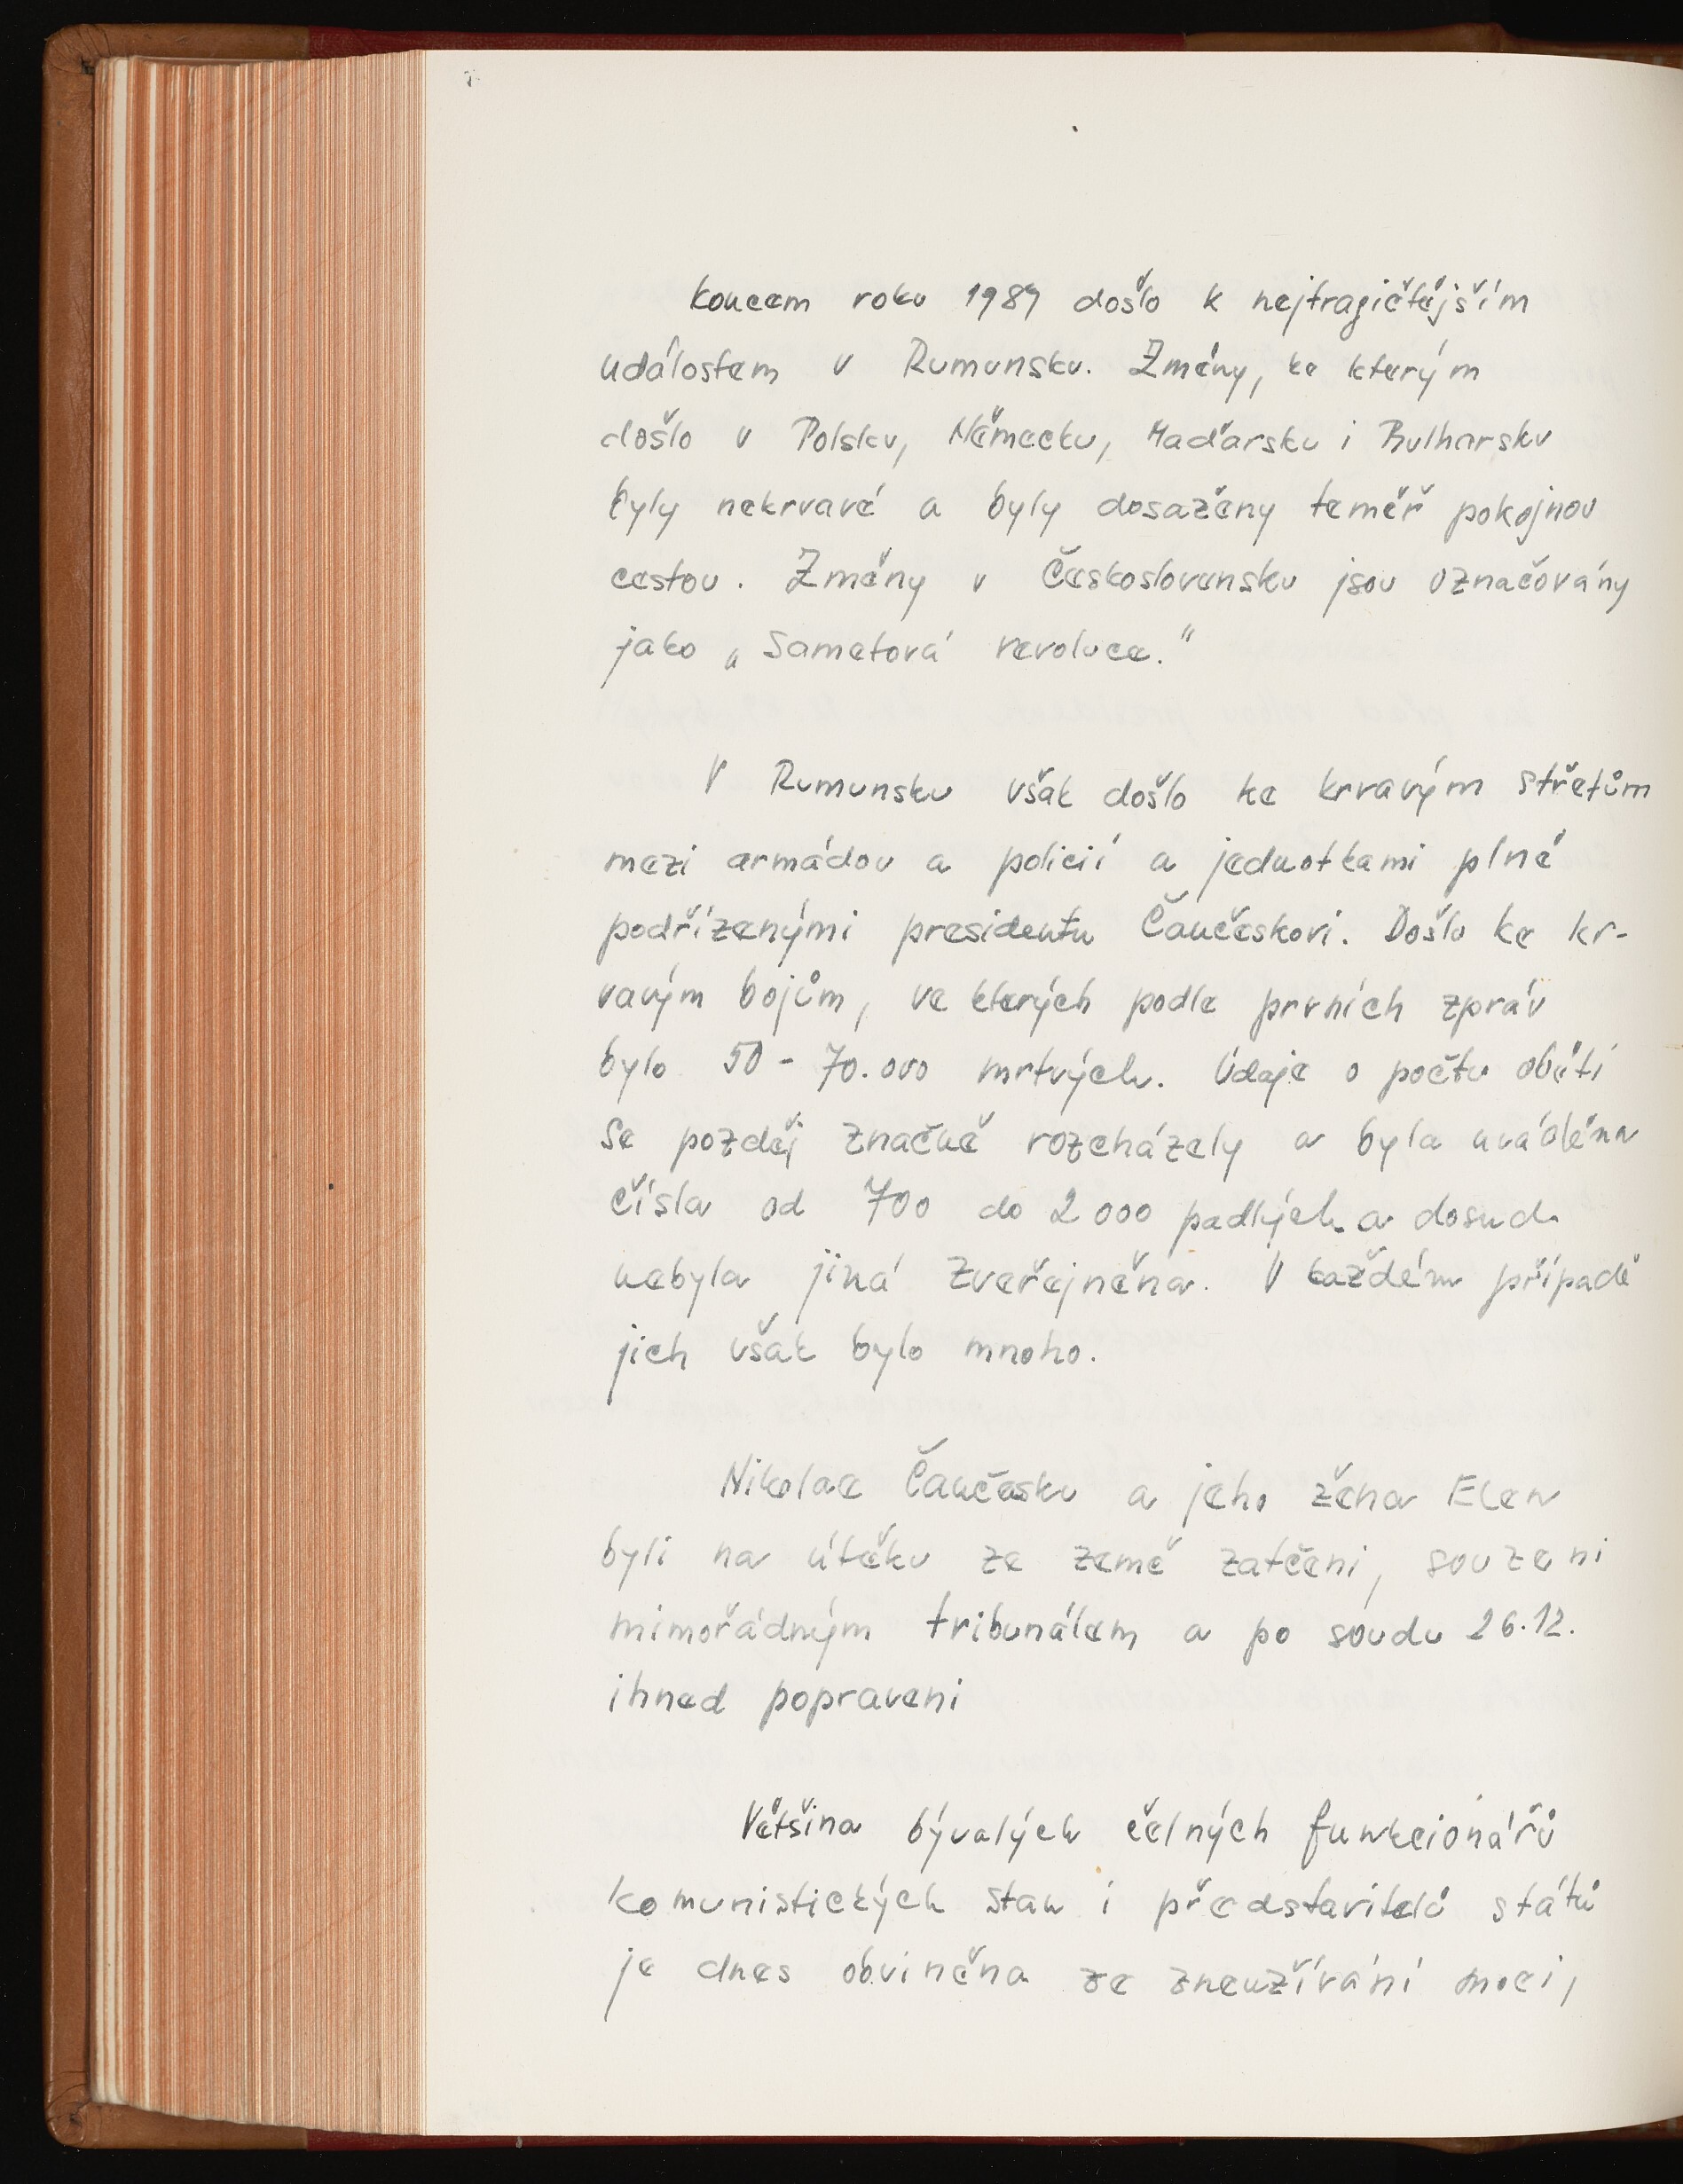 koncem roku 1989 došlo k nejtragičtějším
událostem v Rumunsku. Změny, ke kterým
došlo v Polsku, Německu, Maďarsku i Bulharsku
byly nekrvavé a byly dosaženy téměř pokojnou
cestou. Změny v Československu jsou označovány
jako „Sametová revoluce."
V Rumunsku však došlo ke krvavým střetům
mezi armádou a policií a jednotkami plně
podřízenými presidentu Čaučeskovi. Došlo ke kr-
vavým bojům, ve kterých podle prvních zpráv
bylo 50 - 70.000 mrtvých. Údaje o počtu obětí
se pozděj značně rozcházely a byla uváděna
čísla od 700 do 2000 padlých a dosud
nebyla jiná zveřejněna. V každém případě
jich však bylo mnoho.
Nikolae Čaučesku a jeho žena Elen
byli na útěku ze země zatčeni, souzeni
mimořádným tribunálem a po soudu 26.12.
ihned popraveni
Většina bývalých čelných funkcionářů
komunistických stan i představitelů států
je dnes obviněna ze zneužívání moci,